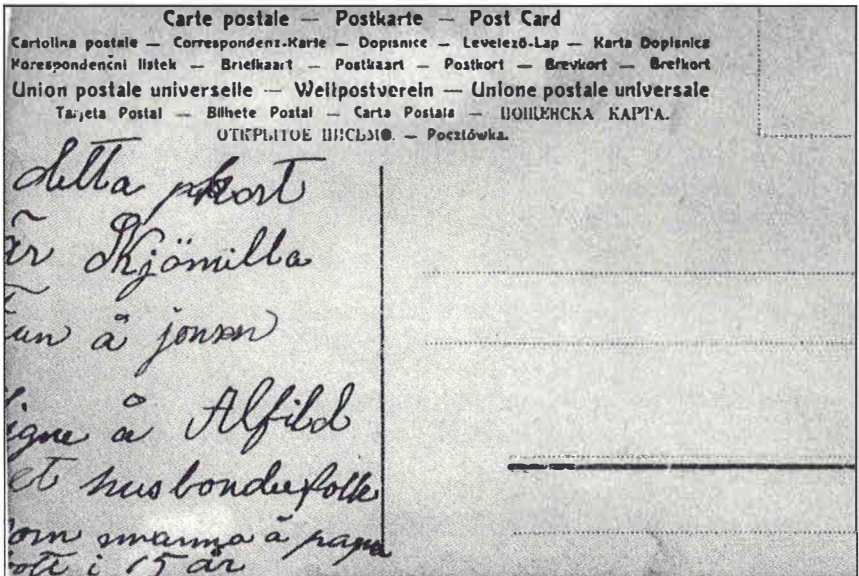 Carte postale — Postkarte — Post Card
Cartolina postale — Correspondenz-Karte — Dopisnice — Levelező-Lap — Karta Dopisnica
Korespondenční listek — Briefkaart — Postkaart — Postkort — Brevkort — Brefkort
Union postale universelle — Weltpostverein — Unione postale universale
Tarjeta Postal — Bilhete Postal — Carta Postala — ПОЩЕНСКА КАРТА.
ОТКРЫТОЕ ПИСЬМО. — Pocztówka.
detta kort
är
å jonsen
igne å Alfild
et husbondefolk
om mamma å papa
i 15 år